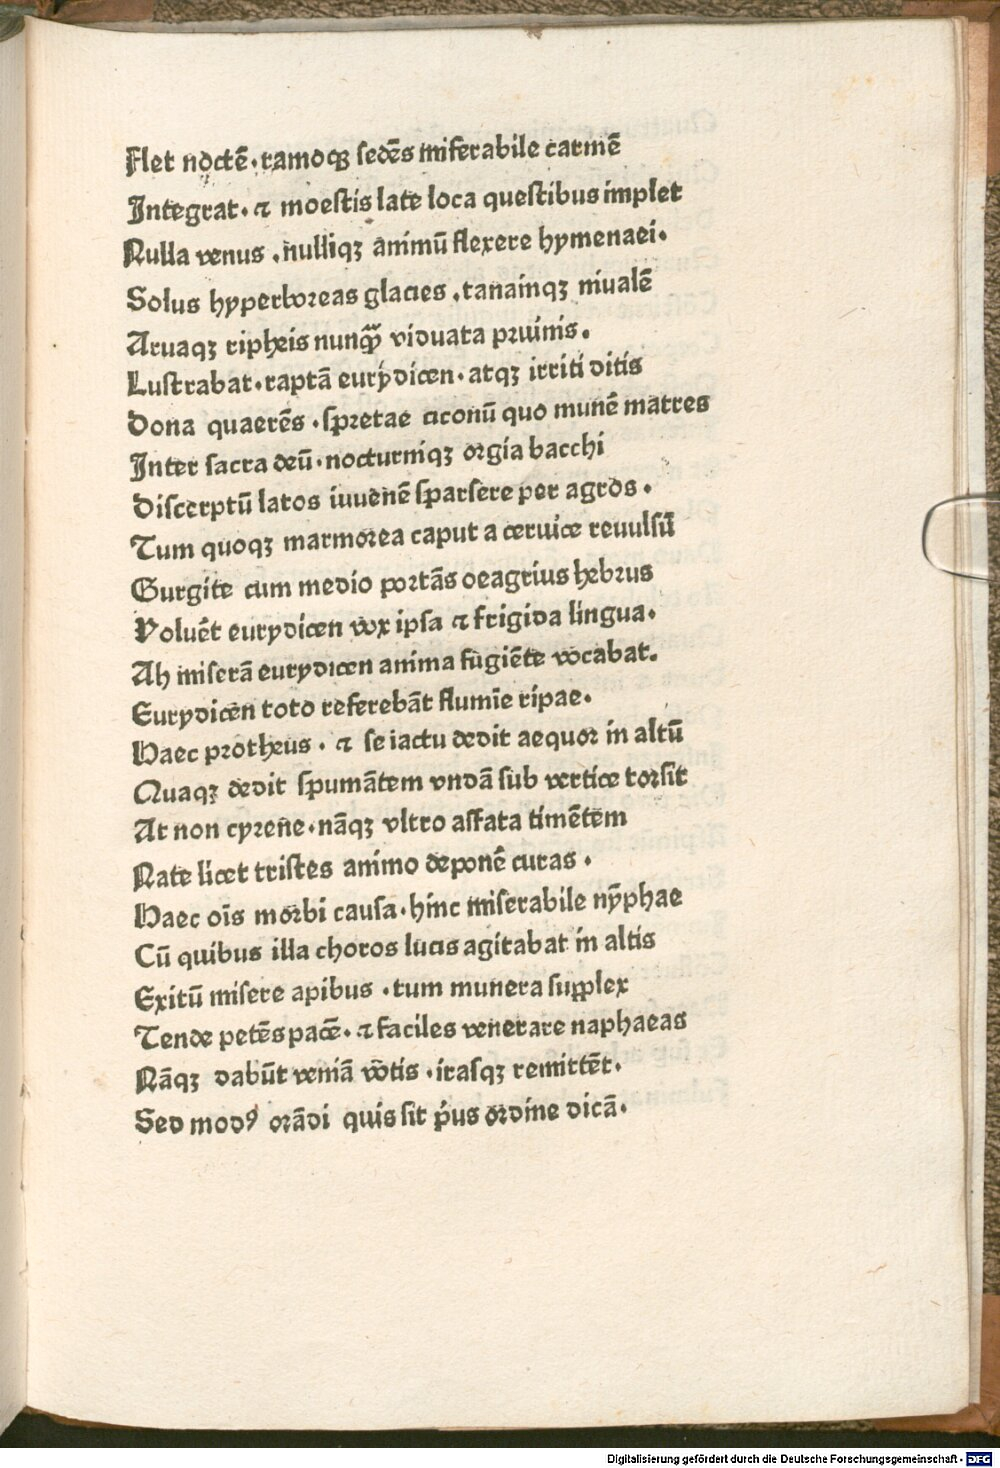 Flet noctē · ramoqꝫ sedēs miserabile carmē
Integrat · ⁊ moestis late loca questibus implet
Nulla venus · nulliqꝫ animū flexere hymenaei ·
Solus hyperboreas glacies · tanainqꝫ niualē
Aruaqꝫ ripheis nunqᷓ viduata pruinis ·
Lustrabat · raptā eurydicen · atqꝫ irriti ditis
Dona quaerēs · spretae ciconū quo munē matres
Inter sacra deū · nocturniqꝫ orgia bacchi
Discerptū latos iuuenē sparsere per agros ·
Tum quoqꝫ marmorea caput a ceruice reuulsū
Gurgite cum medio portās oeagrius hebrus
Voluēt eurydicen vox ipsa ⁊ frigida lingua ·
Ah miserā eurydicen anima fugiēte vocabat ·
Eurydicen toto referebāt flumīe ripae ·
Haec protheus · ⁊ se iactu dedit aequor in altū
Quaqꝫ dedit spumātem vndā sub vertice torsit
At non cyrene · nāqꝫ vltro affata timētem
Nate licet tristes animo deponē curas ·
Haec oīs morbi causa · hinc miserabile nȳphae
Cū quibus illa choros lucis agitabat in altis
Exitū misere apibus · tum munera supplex
Tende petēs pacē · ⁊ faciles venerare naphaeas
Nāqꝫ dabūt veniā vōtis · irasqꝫ remittēt ·
Sed modꝰ orādi quis sit p̄us ordine dicā ·
Digitalisierung gefördert durch die Deutsche Forschungsgemeinschaft - DFG